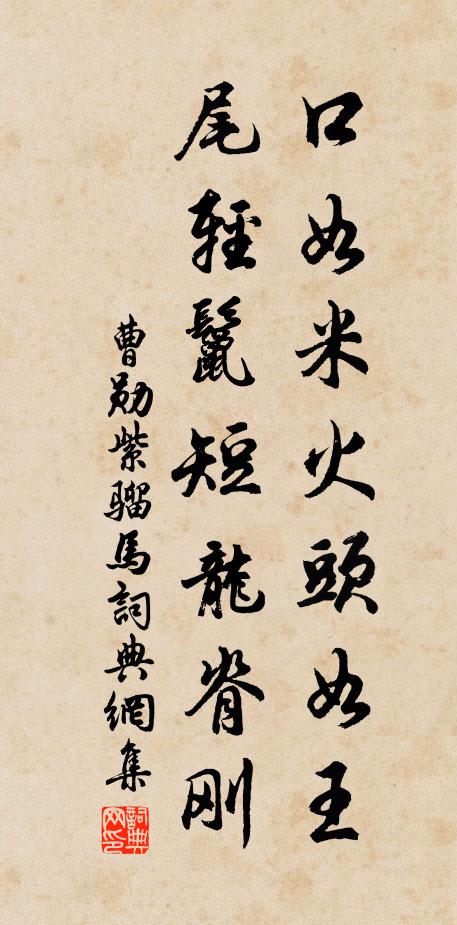 口如米火頭如王
尾輕鬣短龍脊刚
曹勛紫騮馬詞典網集
詞典网印